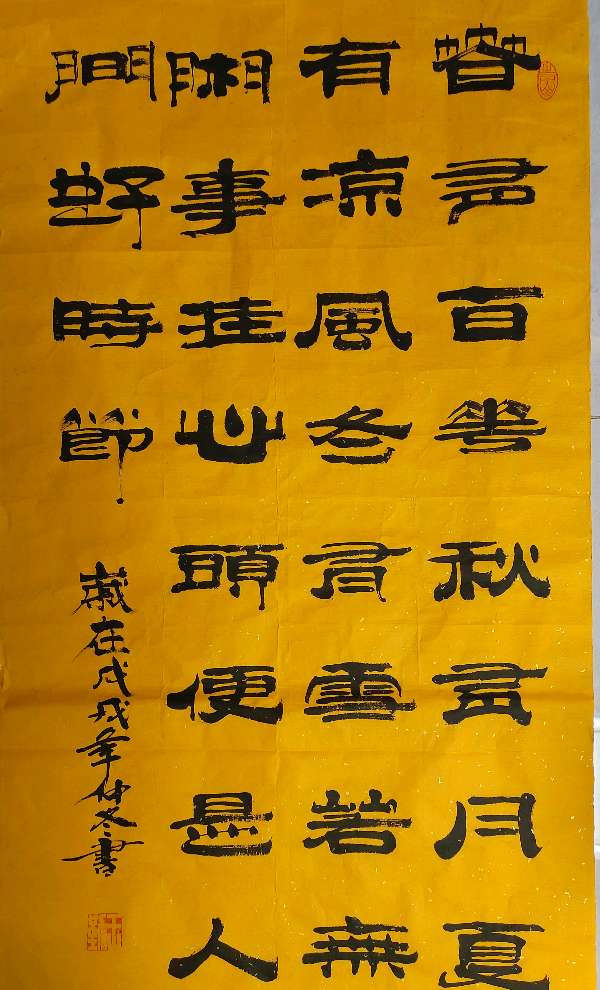 春有百花秋有月夏
有涼風冬有雪若無
閑事挂心頭便是人
間好時節
歲在戊戌年仲冬書